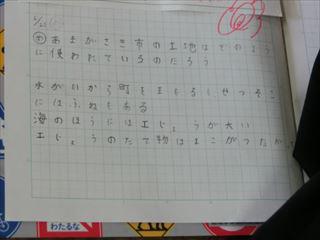 め あまがさき市の土地はどのよう
に使われているのだろう
水がいから町をまもるしせつそこ
にはふねもある
海のほうには工じょうが大い
工じょうのたて物は
わたるな